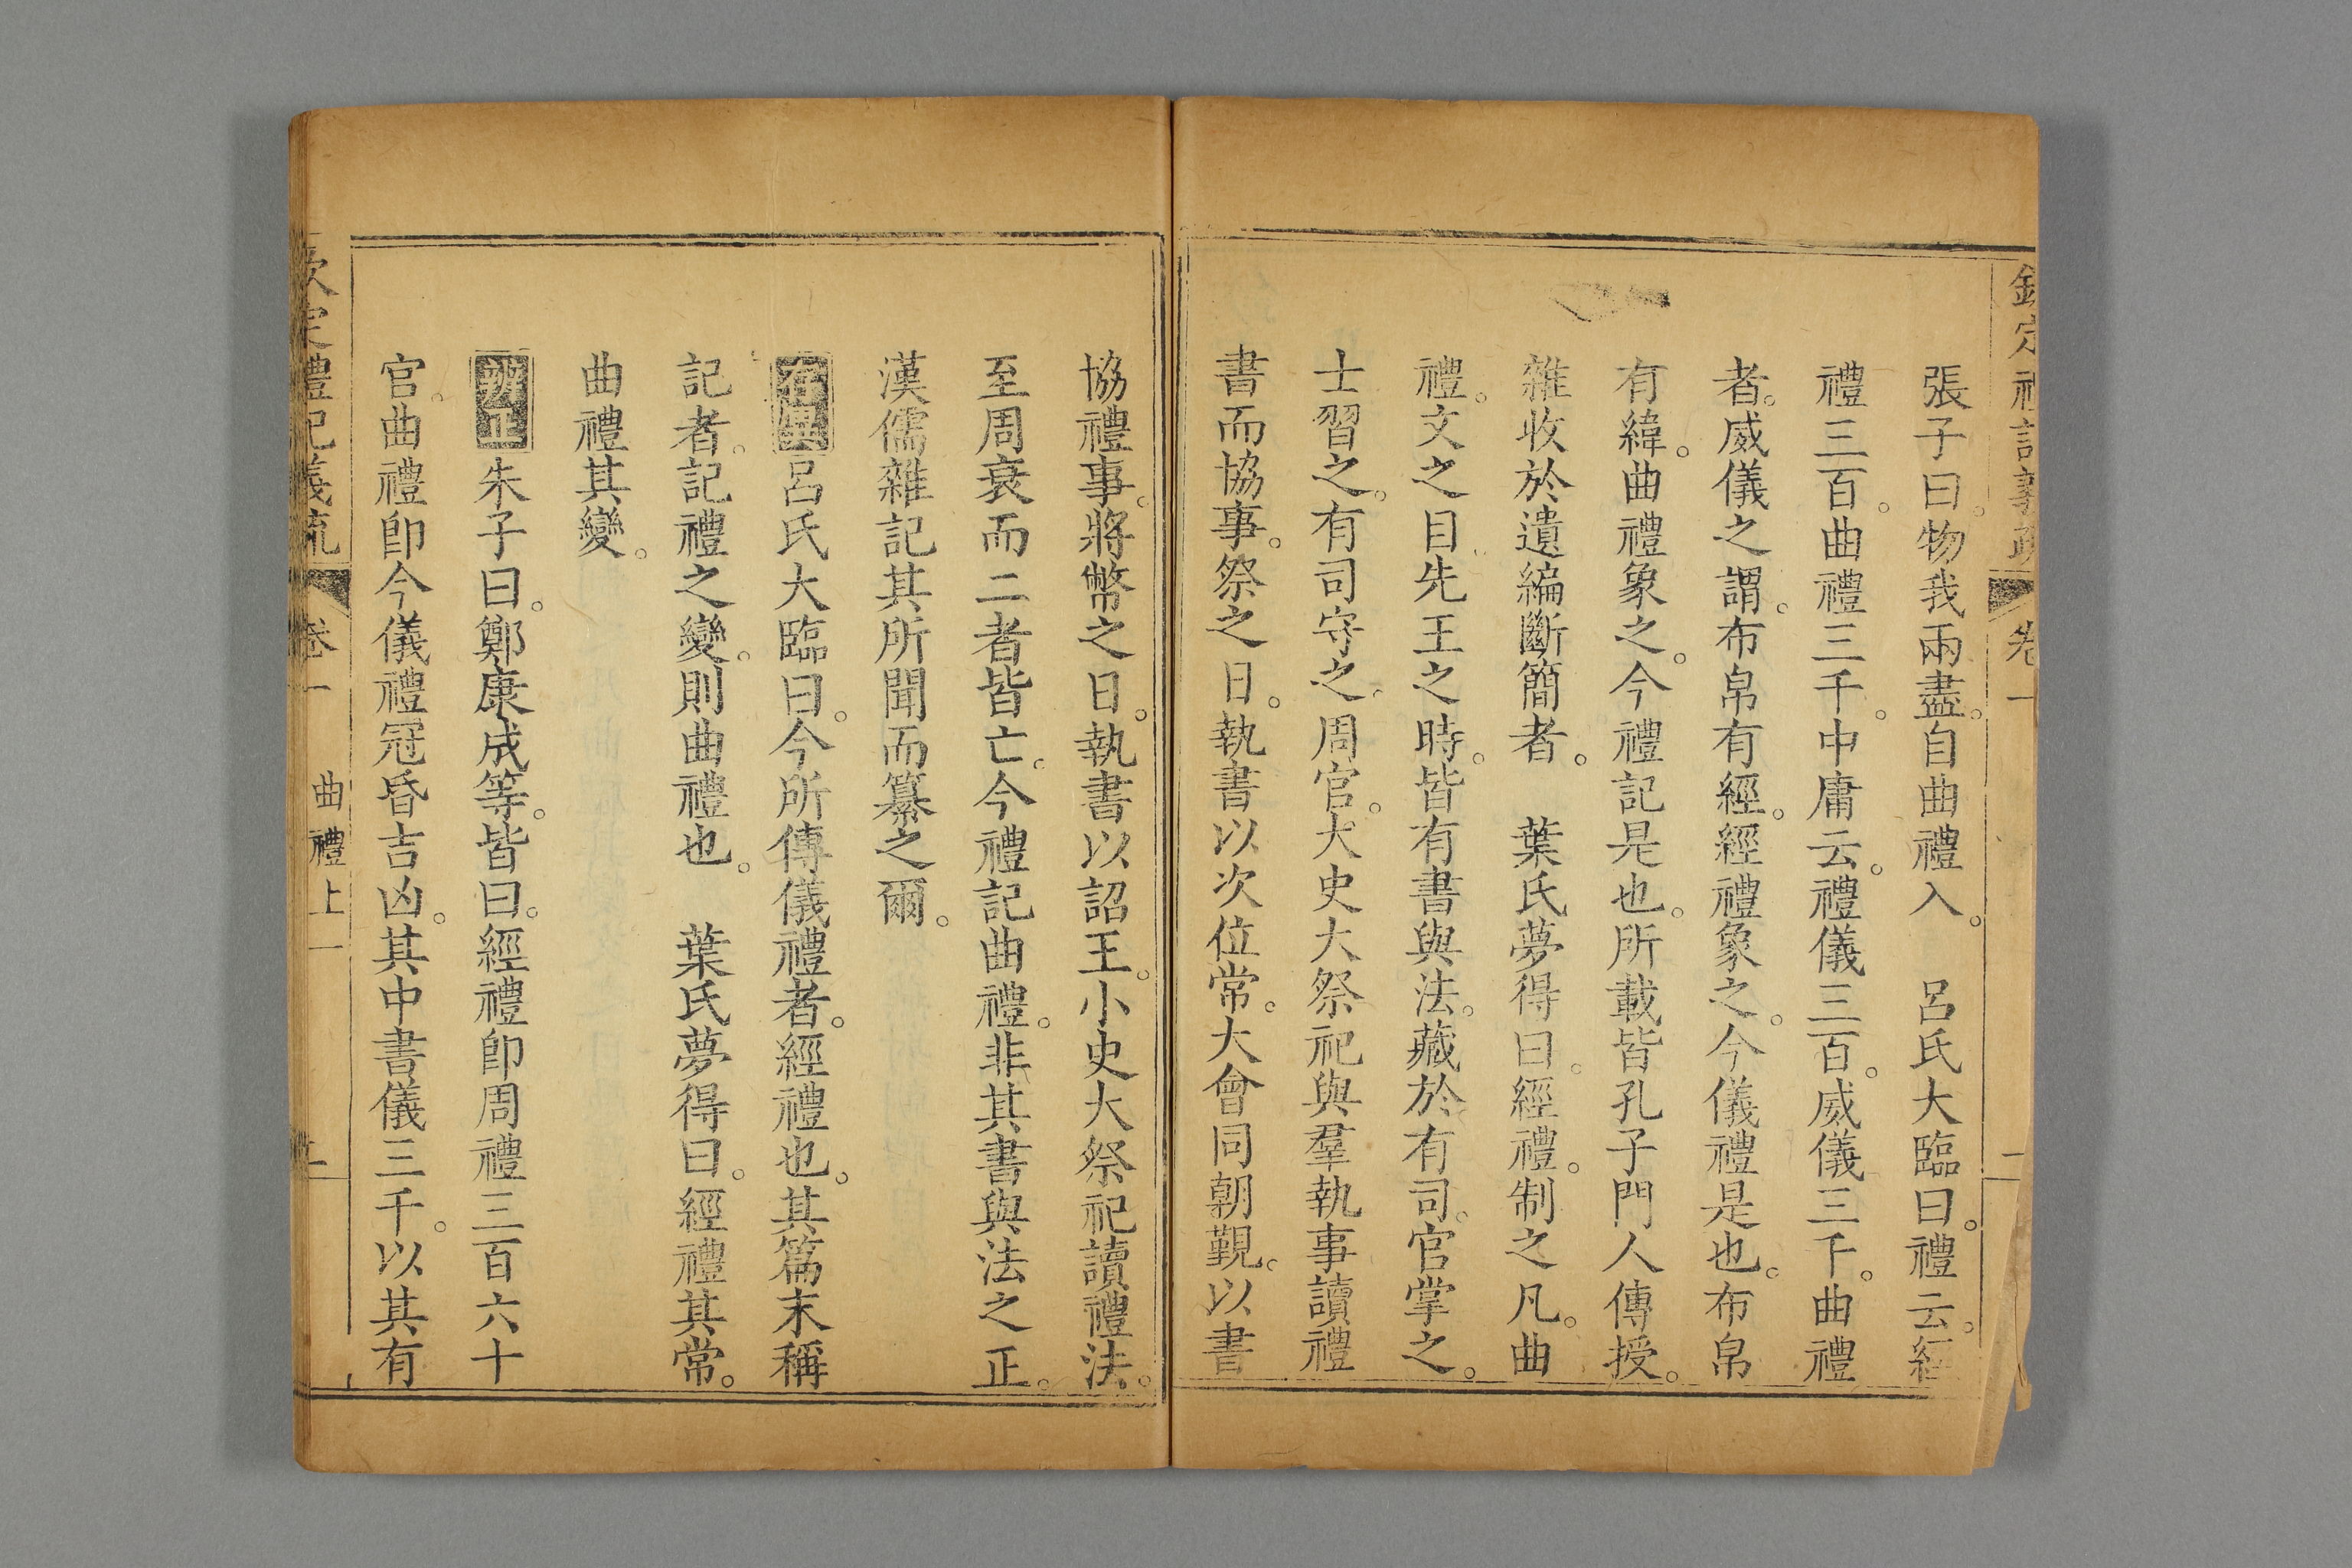 欽定禮記義疏 卷一 二
張子曰。物我兩盡。自曲禮入。 呂氏大臨曰。禮云。經
禮三百。曲禮三千。中庸云。禮儀三百。威儀三千。曲禮
者。威儀之謂。布帛有經。經禮象之。今儀禮是也。布帛
有緯。曲禮象之。今禮記是也。所載皆孔子門人傳授。
雜收於遺編斷簡者。 葉氏夢得曰。經禮。制之凡。曲
禮。文之目。先王之時。皆有書與法。藏於有司。官掌之。
士習之。有司守之。周官。大史大祭祀與羣執事讀禮
書而協事。祭之日。執書以次位常。大會同朝覲。以書
協禮事。將幣之日。執書以詔王。小史大祭祀讀禮法。
至周衰而二者皆亡。今禮記曲禮。非其書與法之正。
漢儒雜記其所聞而纂之爾。
存異 呂氏大臨曰。今所傳儀禮者。經禮也。其篇末稱
記者。記禮之變。則曲禮也。 葉氏夢得曰。經禮其常。
曲禮其變。
辨正 朱子曰。鄭康成等。皆曰。經禮卽周禮三百六十
官。曲禮卽今儀禮冠昏吉凶。其中書儀三千。以其有
欽定禮記義疏 卷一 曲禮上一